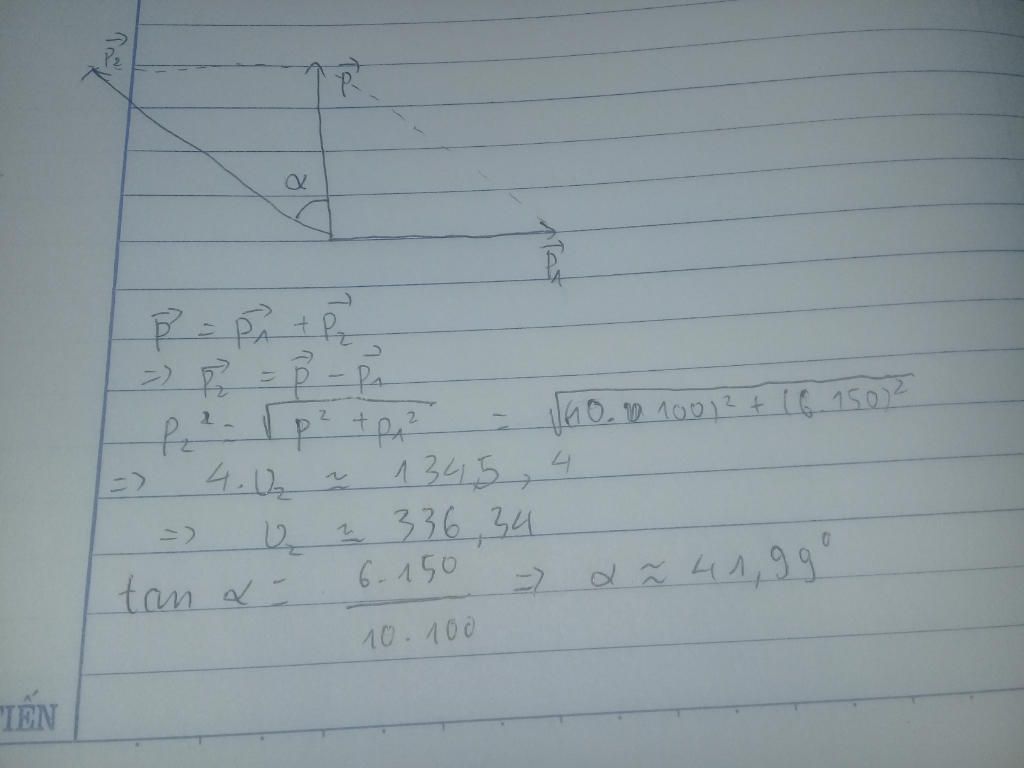 p₂⃗
p⃗
α
p₁⃗
p⃗ = p₁⃗ + p₂⃗
=> p₂⃗ = p⃗ - p₁⃗
p₂² = √(p² + p₁²) = √((10.100)² + (6.150)²)
=> 4.υ₂ ≈ 1345,4
=> υ₂ ≈ 336,34
tan α = 6.150 / 10.100 => α ≈ 41,99°
TIẾN